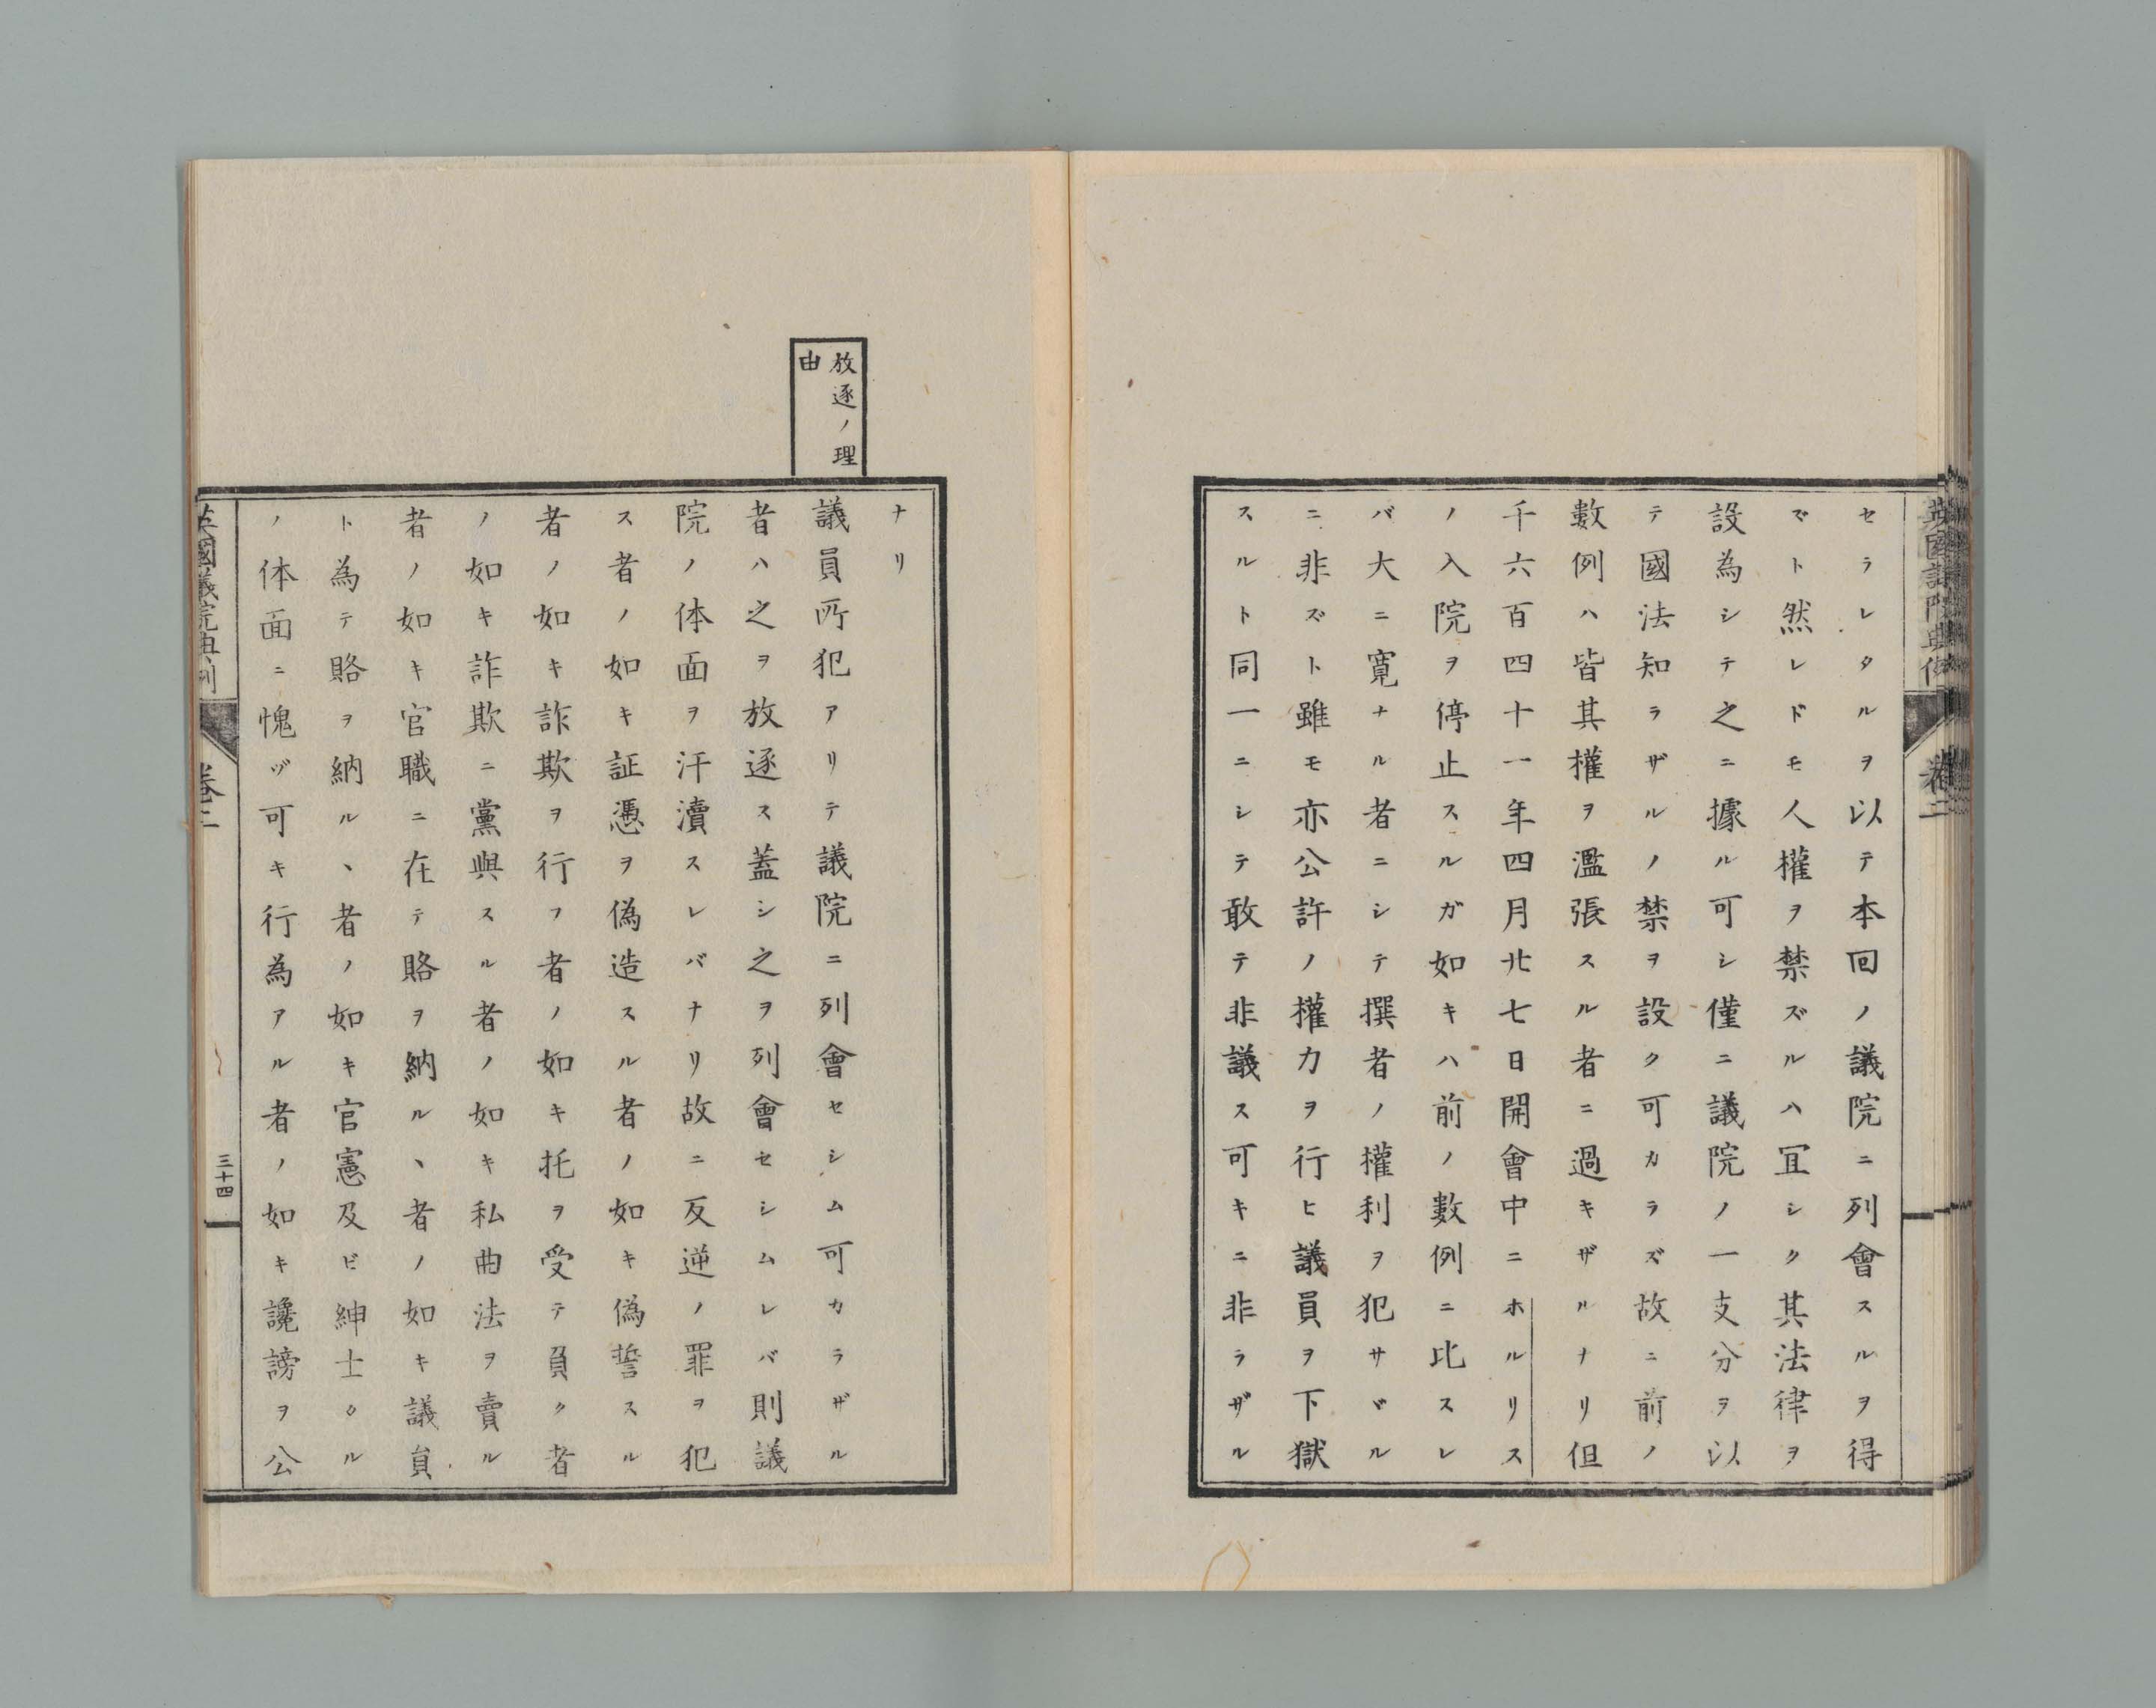 英國議院典例
卷二
セラレタルヲ以テ本回ノ議院ニ列會スルヲ得
ズト然レドモ人權ヲ禁ズルハ冝シク其法律ヲ
設為シテ之ニ據ル可シ僅ニ議院ノ一支分ヲ以
テ國法知ラザルノ禁ヲ設ク可カラズ故ニ前ノ
數例ハ皆其權ヲ濫張スル者ニ過キザルナリ但
千六百四十一年四月廿七日開會中ニホルリス
ノ入院ヲ停止スルガ如キハ前ノ數例ニ比スレ
バ大ニ寛ナル者ニシテ撰者ノ權利ヲ犯サヾル
ニ非ズト雖モ亦公許ノ權力ヲ行ヒ議員ヲ下獄
スルト同一ニシテ敢テ非議ス可キニ非ラザル
ナリ
放逐ノ理
由
議員所犯アリテ議院ニ列會セシム可カラザル
者ハ之ヲ放逐ス蓋シ之ヲ列會セシムレバ則議
院ノ体面ヲ汗瀆スレバナリ故ニ反逆ノ罪ヲ犯
ス者ノ如キ証憑ヲ偽造スル者ノ如キ偽誓スル
者ノ如キ詐欺ヲ行フ者ノ如キ托ヲ受テ負ク者
ノ如キ詐欺ニ黨與スル者ノ如キ私曲法ヲ賣ル
者ノ如キ官職ニ在テ賂ヲ納ルヽ者ノ如キ議員
ト為テ賂ヲ納ルヽ者ノ如キ官憲及ビ紳士タル
ノ体面ニ愧ヅ可キ行為アル者ノ如キ讒謗ヲ公
英國議院典例
卷二
三十四